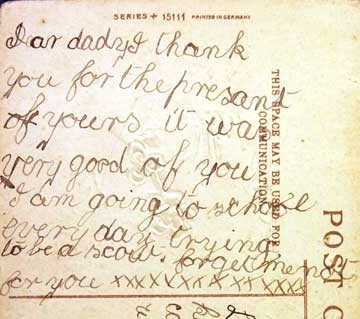 SERIES + 15111 PRINTED IN GERMANY
Dear dady I thank
you for the presant
of yours it was
very good of you
I am going to school
every day trying
to be a scout. forget me not
for you xxxxxxxxxxxx
THIS SPACE MAY BE USED FOR
COMMUNICATION
POST C